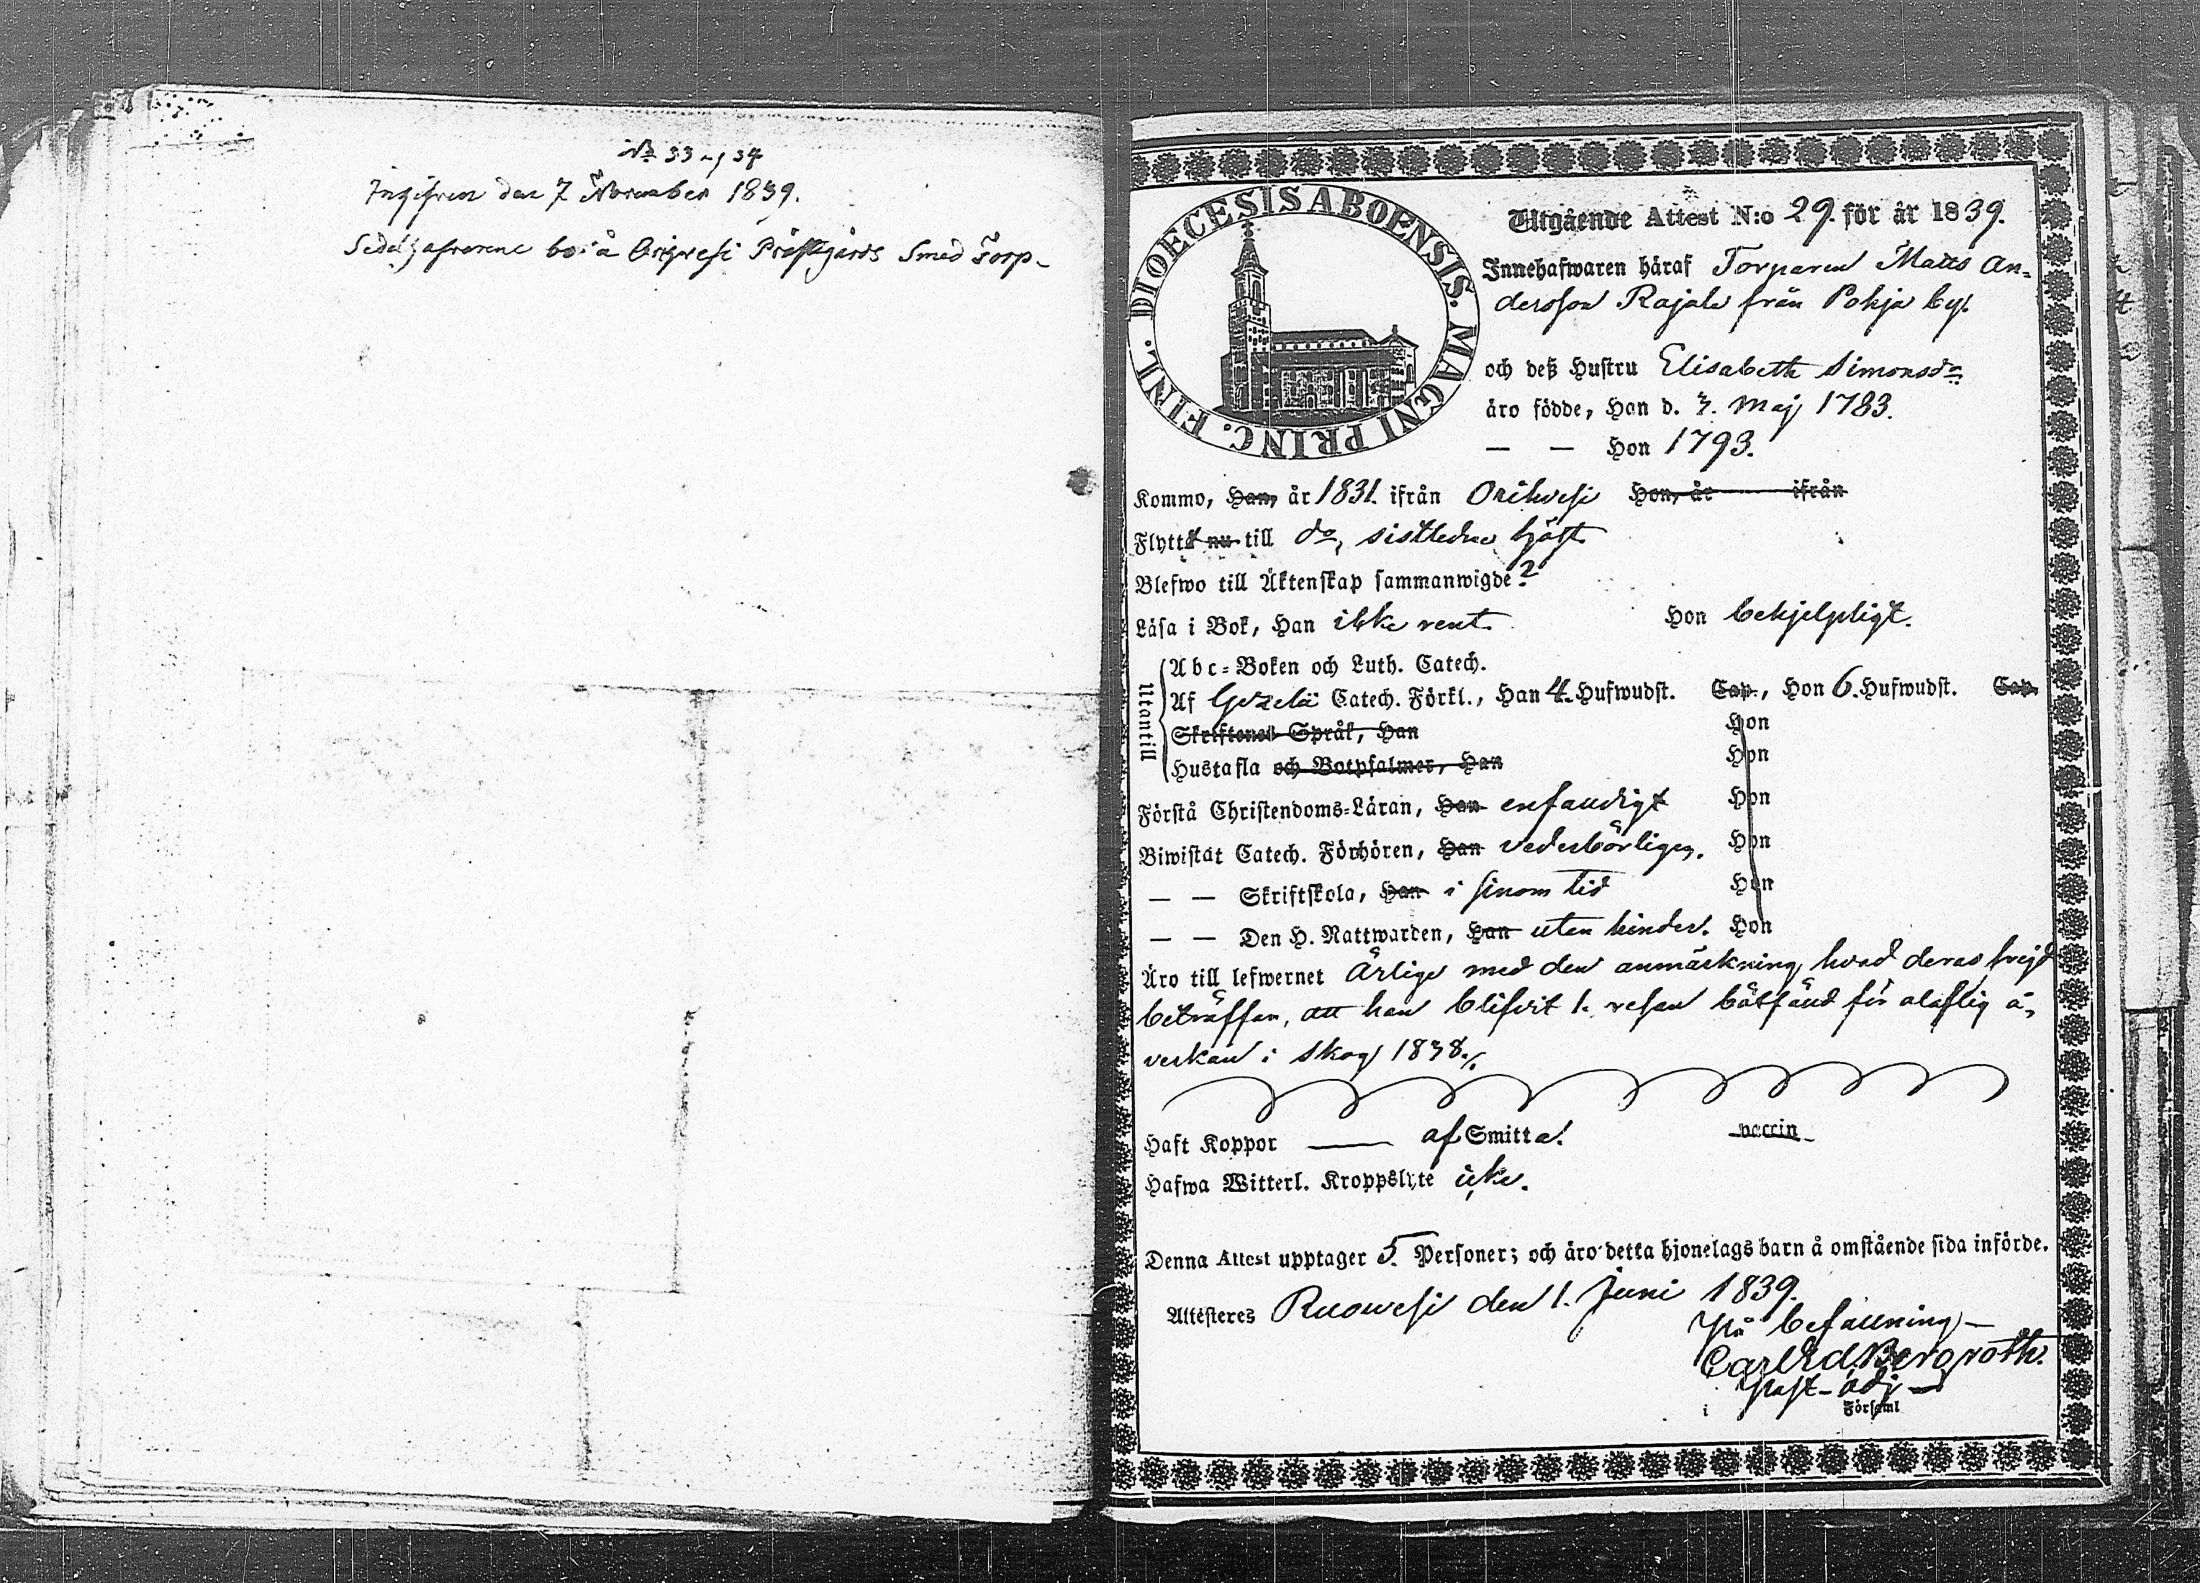 No 33 & 34
Ingifven den 7 November 1839.
Sedelhafvarene bo å Orihvesi Prästgårds Smed Torp.
DIOECESIS ABOENSIS. MAGNI PRINC. FINL.
Utgående Attest N:o 29. för år 1839.
Innehafwaren häraf Torparen Matts An-
dersson Rajala från Pohja by.
och deß Hustru Elisabeth Simonsdr
äro födde, Han d. 7. Maj 1783.
— — Hon 1793.
Kommo, Han, år 1831. ifrån Orihvesi Hon, år ifrån
Flytta nu till do, sistledne höst
Blefwo till Äktenskap sammanwigde?
Läsa i Bok, Han ikke rent. Hon behjelpligt.
Utantill
Abc-Boken och Luth. Catech.
Af Gezelii Catech. Förkl., Han 4. Hufwudst. Cap., Hon 6. Hufwudst. Cap.
Skriftenes Språk, Han Hon
Hustafla och Botpsalmer, Han Hon
Förstå Christendoms-Läran, Han enfaldigt Hon
Biwistat Catech. Förhören, Han vederbörligen. Hon
— — Skriftskola, Han i sinom tid Hon
— — Den H. Nattwarden, Han utan hinder. Hon
Äro till lefwernet Ärlige med den anmärkning, hvad deras frejd
beträffar, att han blifvit 1. resan bötfäld för olaflig å-
verkan i skog 1838./.
Haft Koppor — af Smitta. vaccin
Hafwa Witterl. Kroppslyte icke.
Denna Attest upptager 5. Personer; och äro detta hjonelags barn å omstående sida införde.
Attesteres Ruowesi den 1. Juni 1839.
På befallning
Carl Ed. Bergroth.
Past. adj.
i Församl